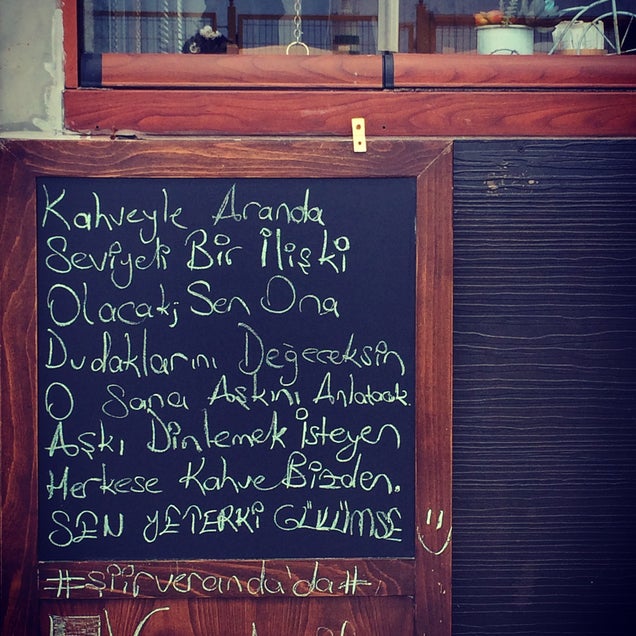 Kahveyle Aranda
Seviyeli Bir İlişki
Olacak; Sen Ona
Dudaklarını Değeceksin
O Sana Aşkını Anlatacak.
Aşkı Dinlemek İsteyen
Herkese Kahve Bizden.
SEN YETERKİ GÜLÜMSE
#şiirveranda'da#